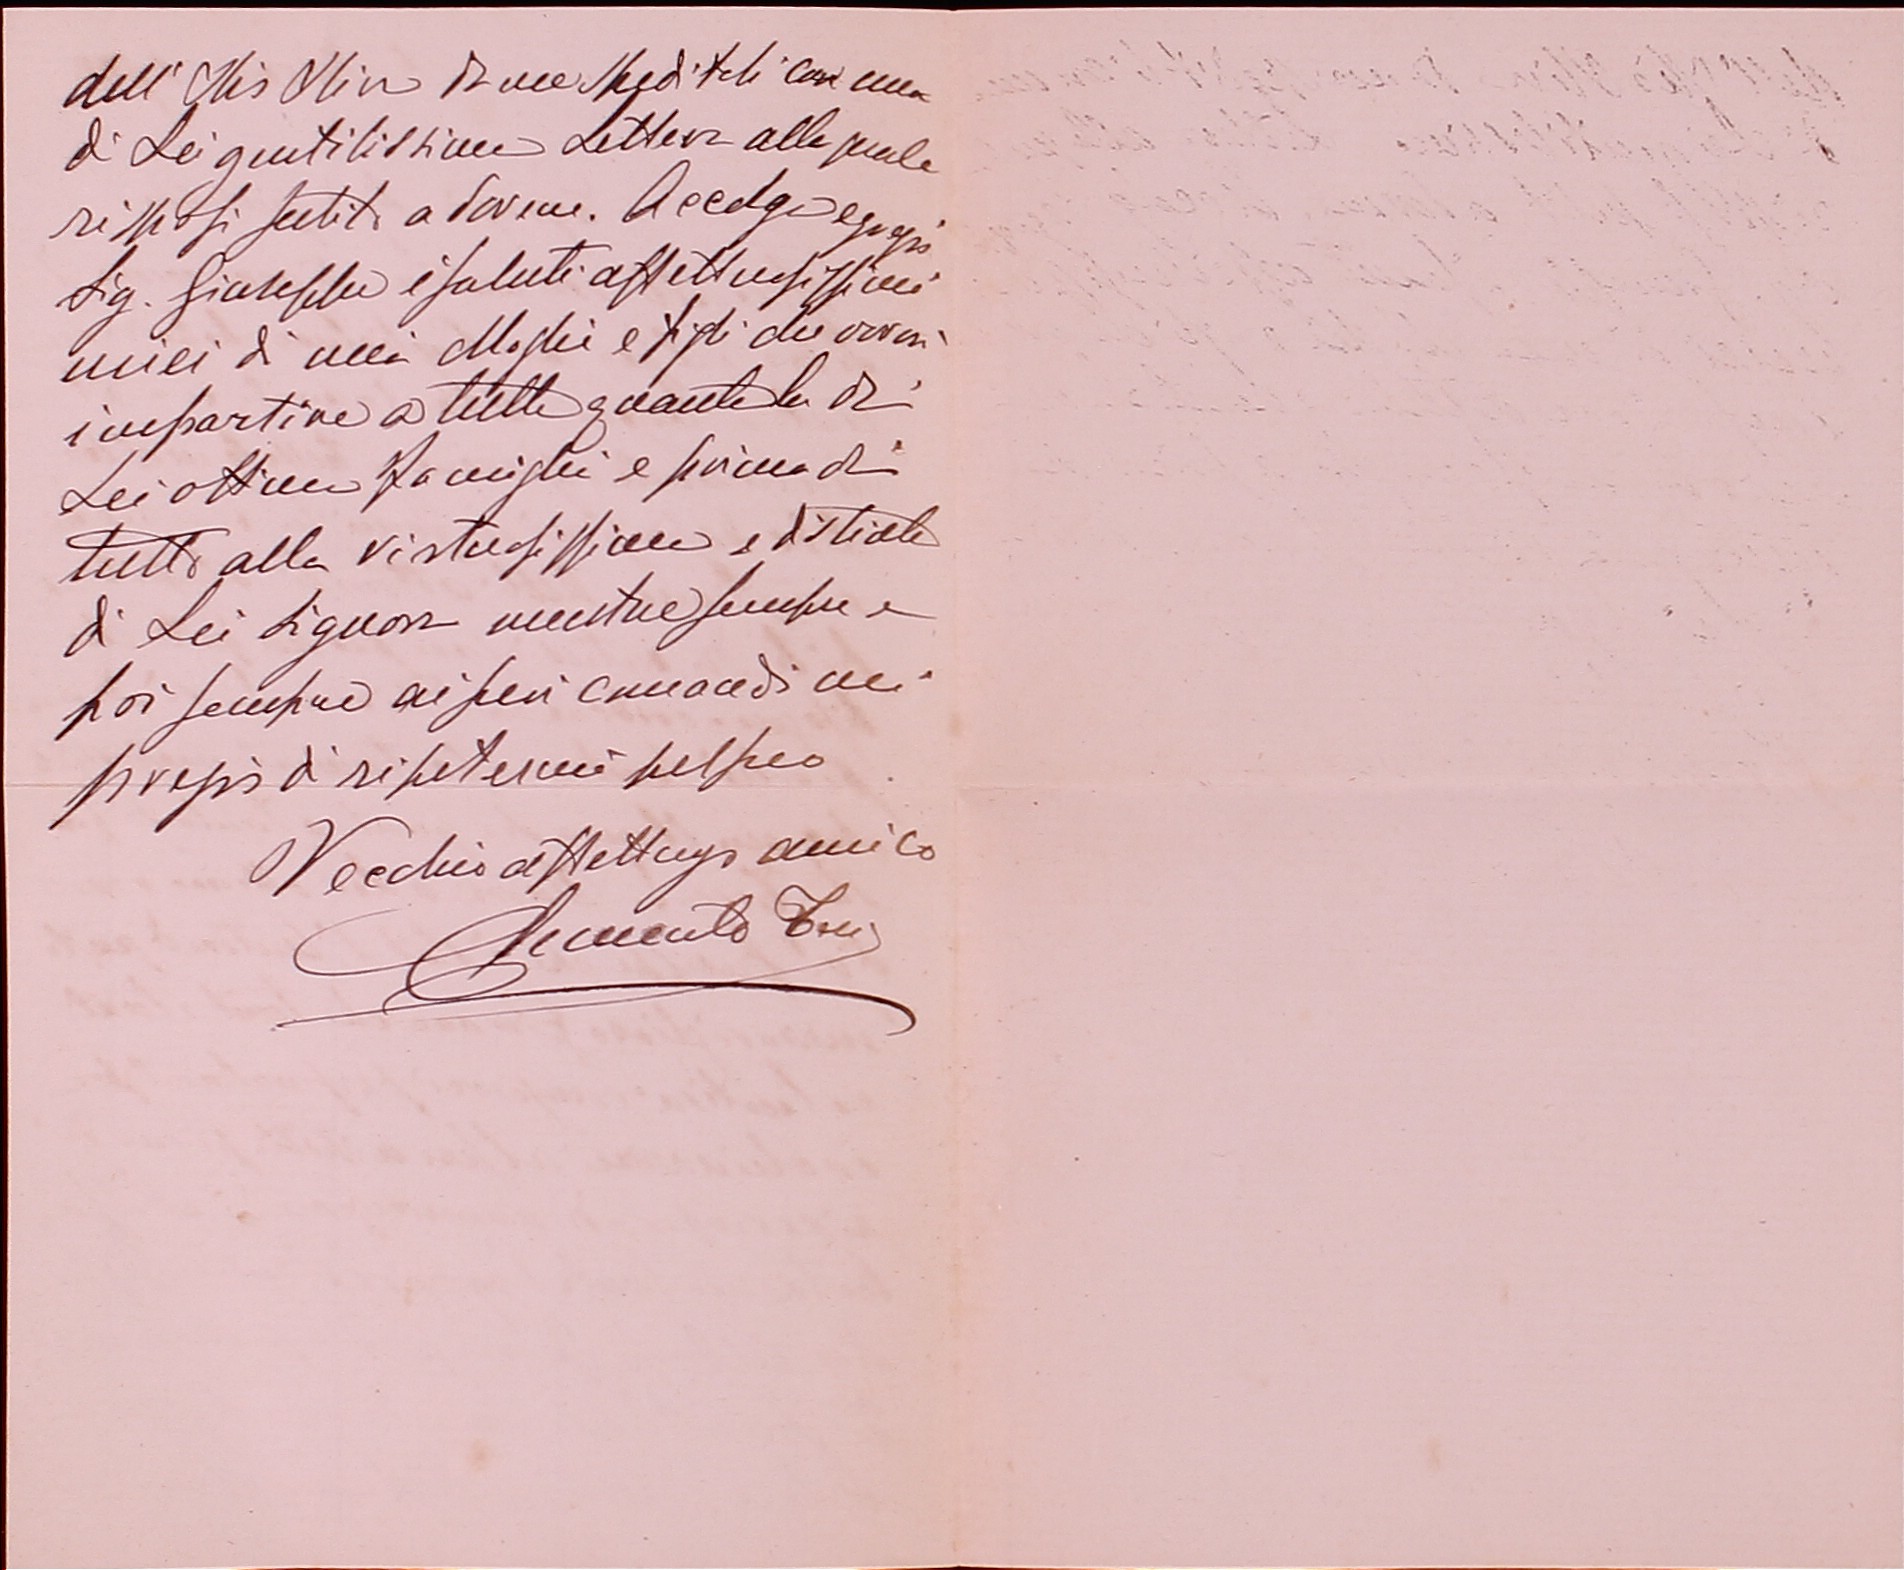 dell'Olio d'Oliva da me speditole con una
di Lei gentilissima Lettera alla quale
risposi subito a dovere. Accolga egregio
Sig. Giuseppe i saluti affettuosissimi
miei di mia Moglie e figli che vorrà
impartire a tutta quanta la di
Lei ottima Famiglia e prima di
tutto alla virtuosissima e distinta
di Lei Signora mentre sempre e
poi sempre ai suoi comandi mi
pregio di ripetermi pel suo
Vecchio affettuoso amico